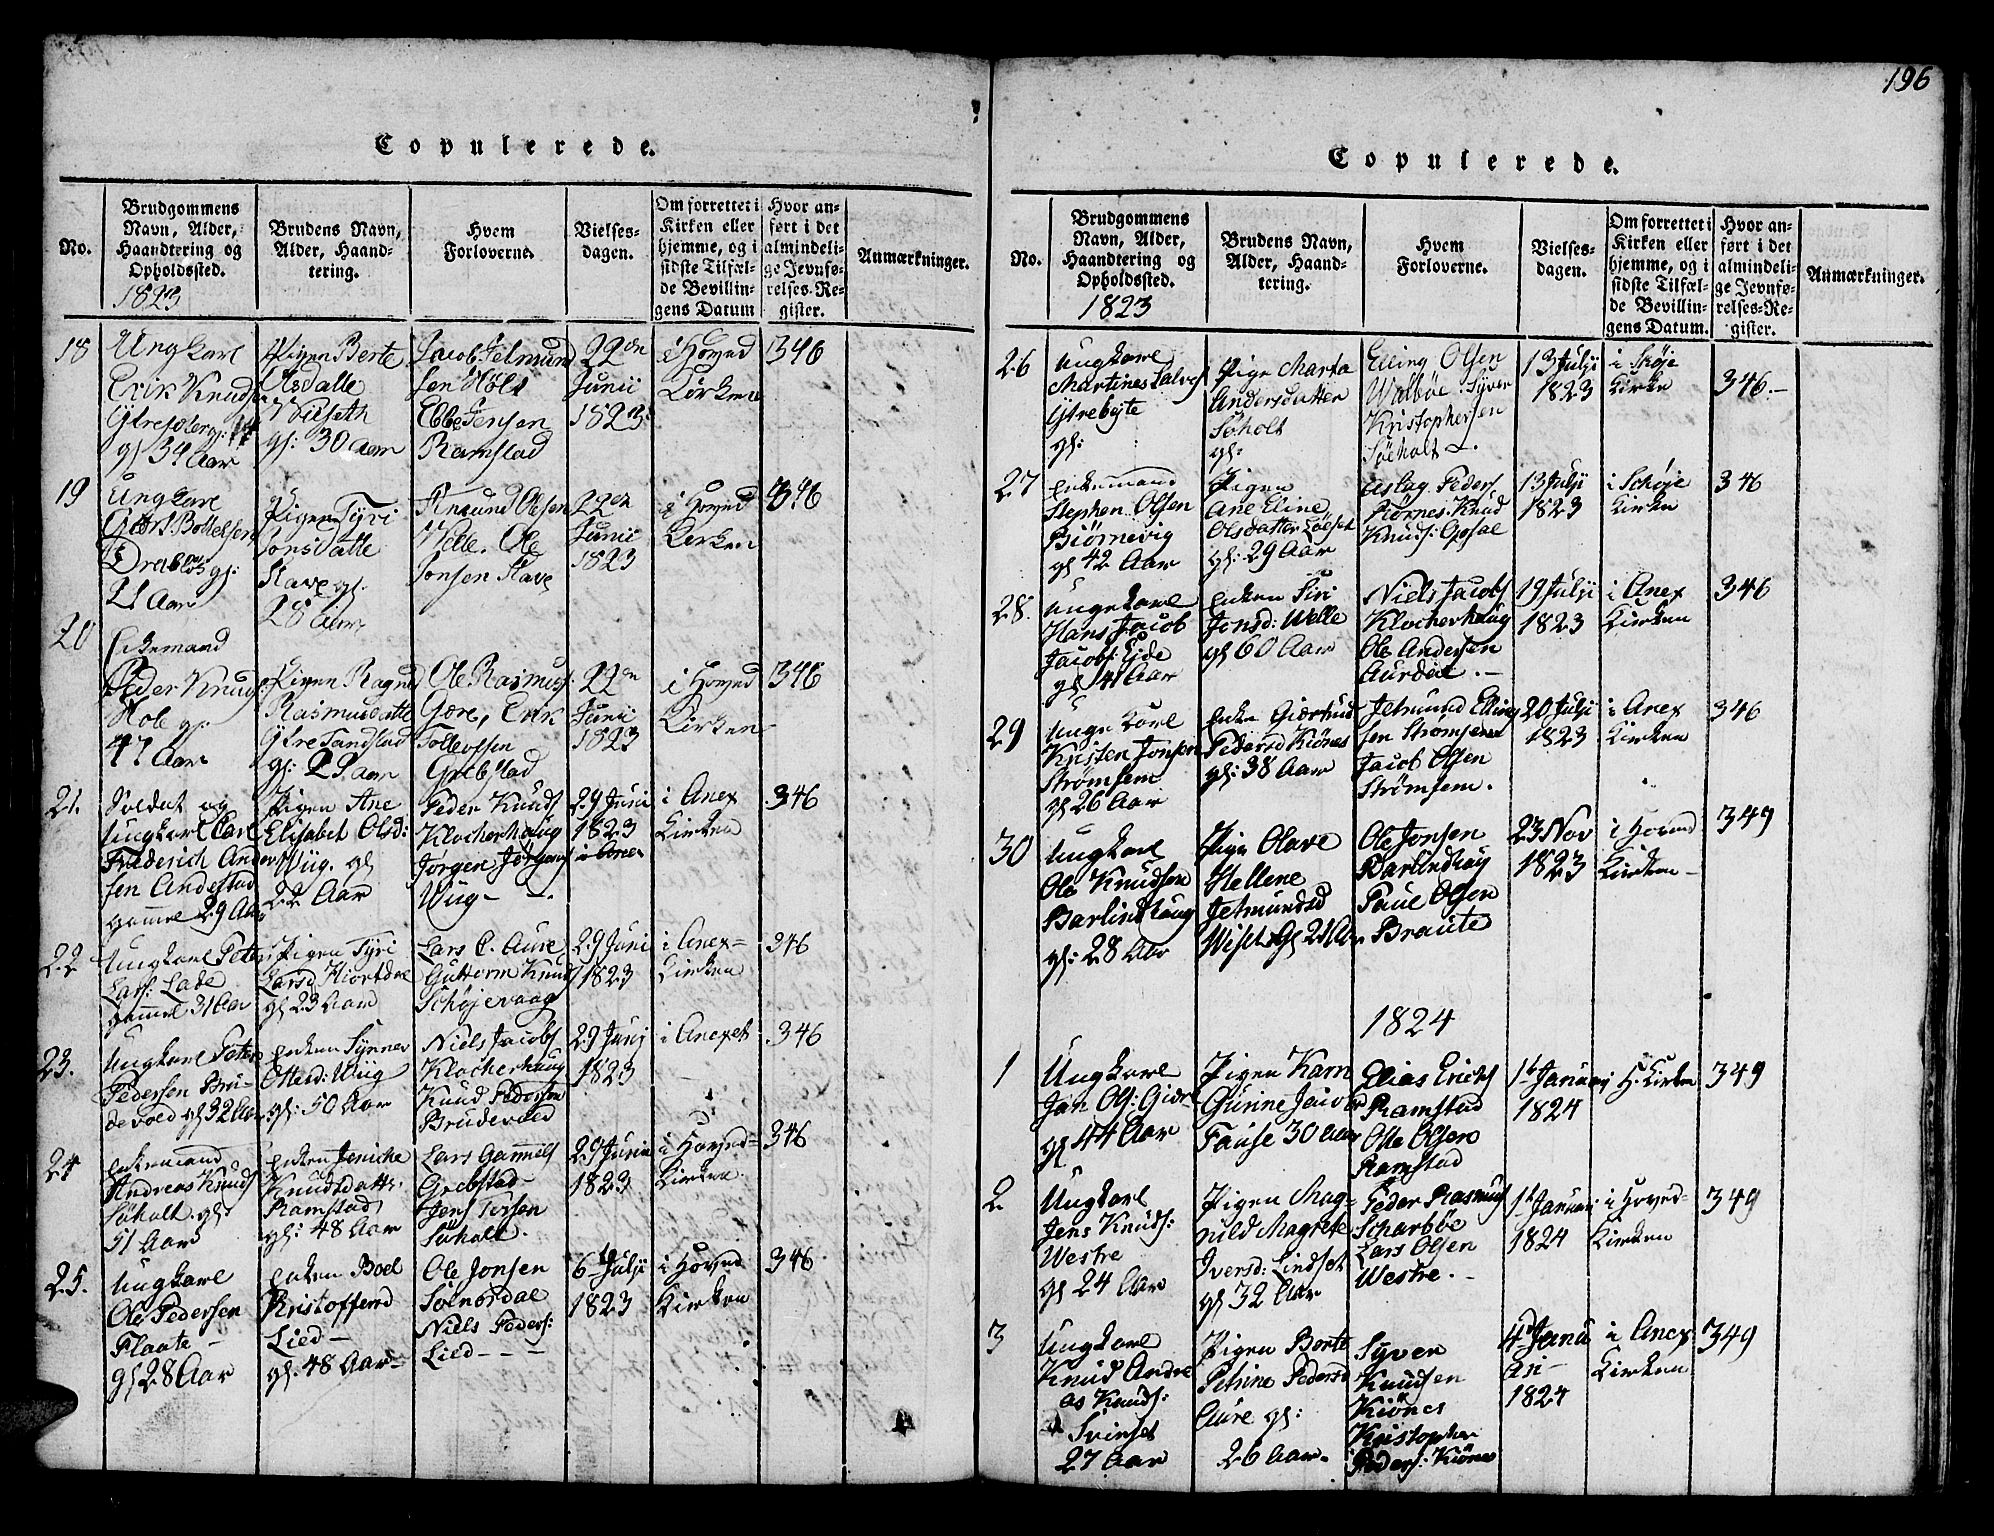 196
Copulerede.
No.
Brudgommens Navn, Alder, Haandtering og Opholdssted.
Brudens Navn, Alder, Haandtering.
Hvem Forloverne.
Vielsesdagen.
Om forrettet i Kirken eller hjemme, og i sidste Tilfælde Bevillingens Datum
Hvor anført i det almindelige Jevnførelses-Register.
Anmærkninger.
1823
18
Ungkarl
Erik Knuds
gl 34 Aar
Pigen Berte
Olsdatte
gl: 30 aar
Jacob Jetmund
sen Holt
Ebbe Jensen
Ramstad
22de
Junii
1823
i Hoved
Kirken
346
19
Ungkarl
21 Aar
Pigen Tyri
Jonsdatte
Slave gl:
28 Aar
Amund Olsen
Velle. Ole
Jonsen Slave
22de
Junii
1823
i Hoved
Kirken
346
20
Enkemand
Peder Knuds
Hole gl:
47 Aar
Pigen Ragne
Rasmusdatte
Ytre Tandstad
gl: 29 aar
Ole Rasmus:
Gjære, Erik
Tollefsen
Grebstad
22de
Junii
1823
i Hoved
Kirken
346
21.
Soldat og
Ungkarl Carl
Friderich Ander
sen Andestad
gammel 29 Aar
Pigen Ane
Elisabet Olsd:
Wiig. gl
22 Aar
Peder Knuds
Klocherhaug
Jørgen Jørgens
Wiig
29 Juni
1823
i Anex
Kirken
346
22
Ungkarl Peter
Lars: Lade
gammel 31 Aar
Pigen Tyri
Larsd Hiortdal
gl 23 Aar
Lars C. Aure
Guttorm Knuds
Schøjevaag
29 Juni
1823
i Anex=
Kirken
346
23.
Ungkarl Peter
Pedersen Bru-
devold gl 32 Aar
Enken Synnev
Ottersd: Wiig
gl: 50 Aar
Niels Jacobs
Klocherhaug
Knud Pedersen
Brudevold
29 Junj
1823
i Anexet
346
24
Enkemand
Andreas Knuds
Søholt gl:
51 Aar
Enken Jeniche
Knudsdatte
Ramstad
gl: 48 Aar
Lars Gammels
Grebstad
Jens Iversen
Søholt.
29 Junii
1823
i Hoved=
Kirken
346
25.
Ungkarl
Ole Pedersen
Flaate
gl 28 Aar
Enken Boel
Kristoffersd
Lied
gl: 48 Aar
Ole Jonsen
Solnørdal
Niels Peders:
Lied
6 Julji
1823
i Hoved
Kirken
346
Copulerede.
No.
Brudgommens Navn, Alder, Haandtering og Opholdssted.
Brudens Navn, Alder, Haandtering.
Hvem Forloverne.
Vielsesdagen.
Om forrettet i Kirken eller hjemme, og i sidste Tilfælde Bevillingens Datum.
Hvor anført i det almindelige Jevnførelses-Register.
Anmærkninger.
1823
26
Ungkarl
Martines Salvs
Ytrebyte
gl:
Pige Marta
Andersdatter
Søholt
gl:
Elling Olsen
Walbøe Syver
Kristophersen
Søeholt
13 Julji
1823
i Skøje
Kirke
346.
27
Enkemand
Stephen Olsen
Biørnevig
gl 42 Aar
Pigen
Ane Eline
Olsdatter Løeset
gl: 29 Aar
Aslag Peders
Kiørnes: Knud
Knuds: Opsal
13 Julji
1823
i Schøje
Kirken
346
28.
Ungekarl
Hans Jacob
Jacobs: Eide
gl 41 Aar
Enken Siri
Jonsd: Welle
gl 60 Aar
Niels Jacobs
Klocherhaug
Ole Andersen
Aurdal.
19 Julji
1823
i Anex
Kirken
346
29
Unge Karl
Kristen Jonsen
Strømsem
gl 26 Aar
Enke Giærtrud
Pedersd Kiønes
gl: 38 Aar
Jetmund Elling
sen Strømsem
Jacob Olsen
Strømsem.
20 Julji
1823
i Anex
Kirken
346
30
Ungkarl
Ole Knudsen
Barlindhaug
gl: 28 Aar
Pige Olave
Hellene
Jetmundsd
Wiset gl 21 Aar
Ole Jonsen
Barlindhaug
Paul Olsen
Braute
23 Nov
1823
i Hoved
Kirken
349
1824
1
Ungkarl
Jan Ols: Giære
gl 44 Aar
Pigen Karn
Gurine Jacobs
Fause 30 Aar
Elias Erichs
Ramstad
Ole Olsen
Ramstad
1t Januarj
1824
H: Kirken
349
2
Ungkarl
Jens Knuds:
Westre
gl 24 Aar
Pigen Mag-
nild Magrete
Iversd: Lindset
gl 32 Aar
Peder Rasmus
Scharbøe
Lars Olsen
Westre.
1t Januari
1824
i Hoved=
Kirken
349
3
Ungkarl
Knud Andre
as Knuds:
Svinset
27 Aar
Pigen Berte
Petrine Pedersd
Aure gl:
26 Aar.
Syver
Knudsen
Kiønes
Kristopher
Peders: Kiønes
4t Janu
ari
1824
i Anex
Kirken
349